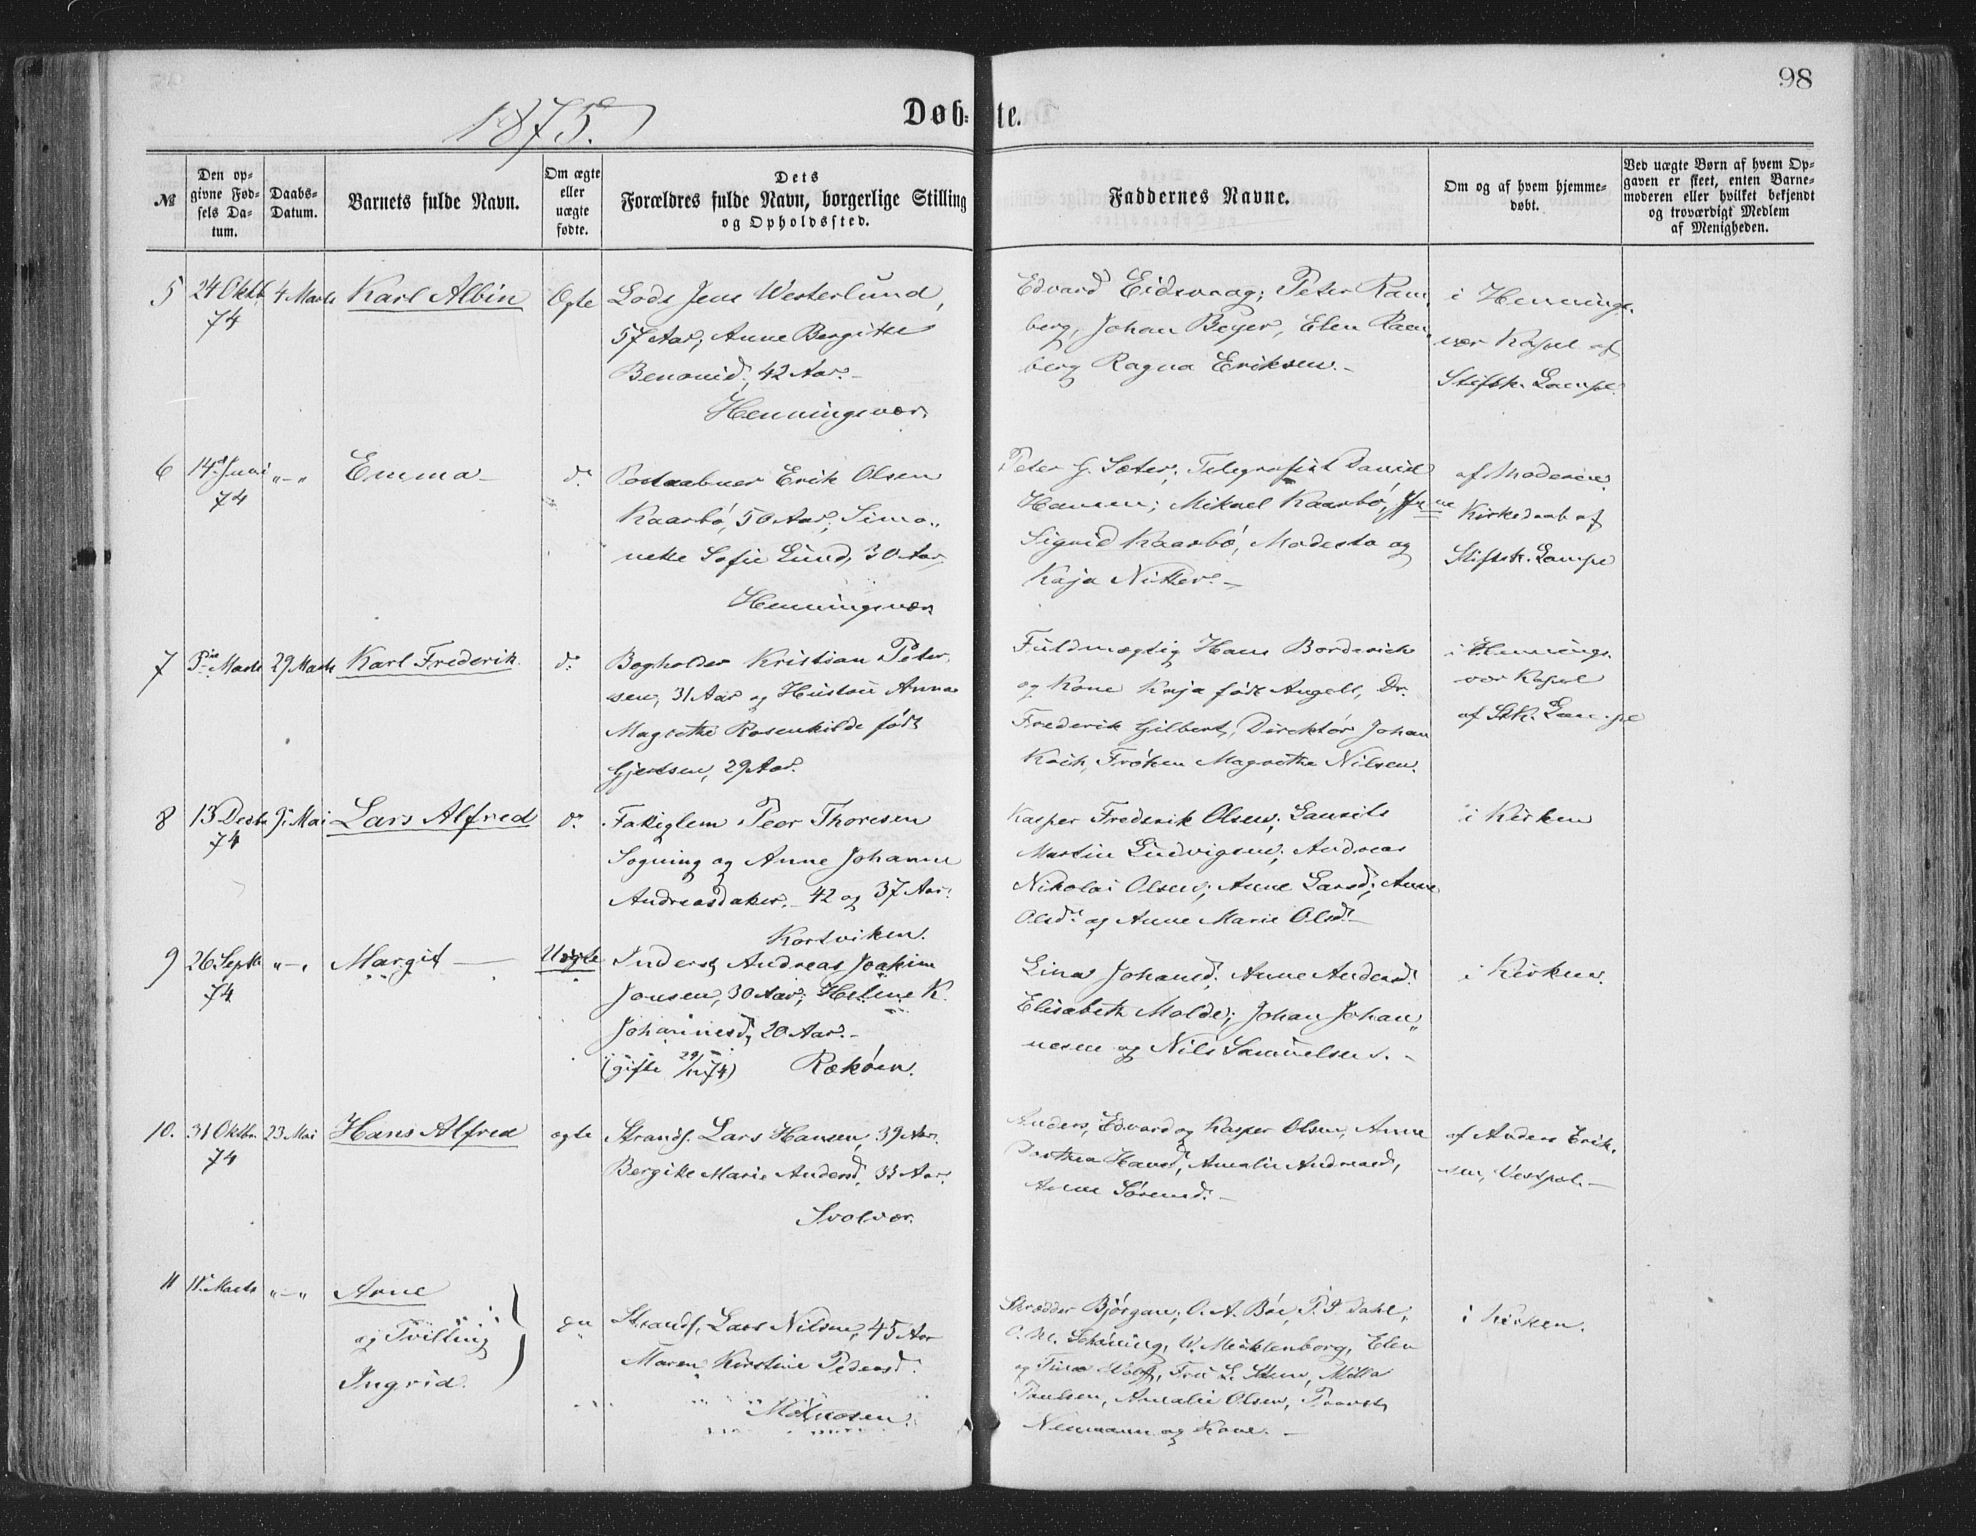 98
1875.
Døb-te.
№
Den op-
givne Fød-
sels Da-
tum.
Daabs-
Datum.
Barnets fulde Navn.
Om ægte
eller
uægte
fødte.
Dets
Forældres fulde Navn, borgerlige Stilling
og Opholdssted.
Faddernes Navne.
Om og af hvem hjemme-
døbt.
Ved uægte Børn af hvem Op-
gaven er skeet, enten Barne-
moderen eller hvilket bekjendt
og troværdigt Medlem
af Menigheden.
5 24 Oktb. 74
4 Marts
Karl Albin
Ægte
Lods Jens Westerlund,
57 Aar, Anne Bergitte
42 Aar.
Henningsvær.
Edvard Eidsvaag; Peter Ram-
berg, Johan Beyer, Elen Ram-
berg Ragna Eriksen.
i Hennings-
vær Kapel af
Stiftsk. Lampe.
6 14 Juni 74
"-"
Emma
do.
Postaabner Erik Olsen
Kaarbø, 50 Aar, Simo-
nette Sofie Lund, 30 Aar
Henningsvær
Peter G. Sæter, Telegrafist David
Hansen; Mikael Kaarbø,
Sigrid Kaarbø, Modesta og
Kaja Nitter.
af Moderen.
Kirkedaab af
Stiftsk. Lampe
7 Marts
29 Marts
Karl Frederik
do.
Bogholder Kristian Peter-
sen, 31 Aar og Hustru Anna
Magrethe Rosenkilde født
Gjertsen, 29 Aar.
Fuldmægtig Hans Borderich
og Kone Kaja født Angell, Dr.
Frederik Gilbert, Direktør Johan
Koch, Frøken Magrethe Nilsen.
i Hennings-
vær Kapel
af Stk. Lampe
8 13 Decbr 74
9 Mai
Lars Alfred
do.
Fattiglem Peer Thoresen
Sogning og Anne Johanne
Andreasdatter. 42 og 37 Aar.
Kortviken.
Kasper Frederik Olsen; Laurits
Martin Ludvigsen; Andreas
Nikolai Olsen; Anne Larsd; Anne
Olsd. og Anne Marie Olsd.
i Kirken
9 26 Septb 74
"-"
Margit
Uægte
Inderst Andreas Joakim
Jonsen, 30 Aar; Helene K.
Johannesd, 20 Aar.
(gifte 29/12 74) Rækøen.
Lina Johansd. Anne Andersd.
Elisabeth Molde; Johan Johan-
nesen og Nils Samuelsen.
i Kirken.
10. 31 Oktbr. 74
23 Mai
Hans Alfred
ægte
Strands. Lars Hansen, 39 Aar.
Bergitte Marie Andersd. 33 Aar.
Svolvær.
Anders, Edvard og Kasper Olsen, Anne
Dorthea Hansd, Amalie Andreasd,
Anne Sørensd.
af Anders Erik-
sen, Vestpol.
11 11 Marts
"-"
Arne
og Tvilling
Ingrid.
Strands. Lars Nilsen, 45 Aar
Maren Kirstine Pedersd.
Skrædder Bjørgan; O. A. Bøe, P. P. Dahl,
C. M. Schøning, W. Mecklenborg, Elen
og Tina Wolf, Fru L. Steen, Milla
Paulsen, Amalie Olsen, Provst
Neumann og Kone.
i Kirken.